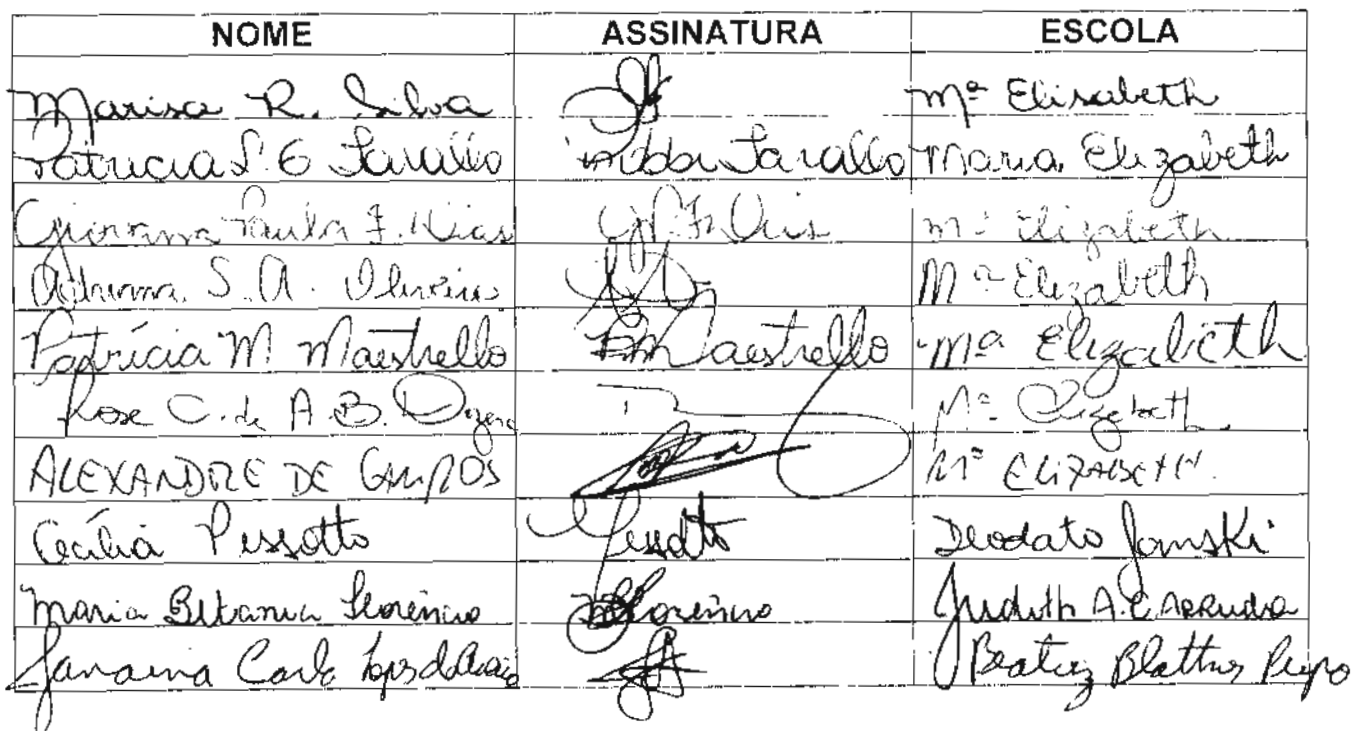 NOME ASSINATURA ESCOLA
Marisa R. Silva Mª Elisabeth
Patricia S. G Sarallo Sarallo Maria Elizabeth
Giovanna Paula F. Mª Elizabeth
Adriana S. A. Oliveira Mª Elizabeth
Patrícia M. Maestrello PMaestrello Mª Elizabeth
Rose C. de A. B. Mª Elizabeth
ALEXANDRE DE CAMPOS Mª ELIZABETH.
Cecília Pessotto Pessotto Deodato Janski
Maria Betania Florêncio MFlorêncio Judith A. C ARRUDA
Janaina Carla Beatriz Blattner Pupo